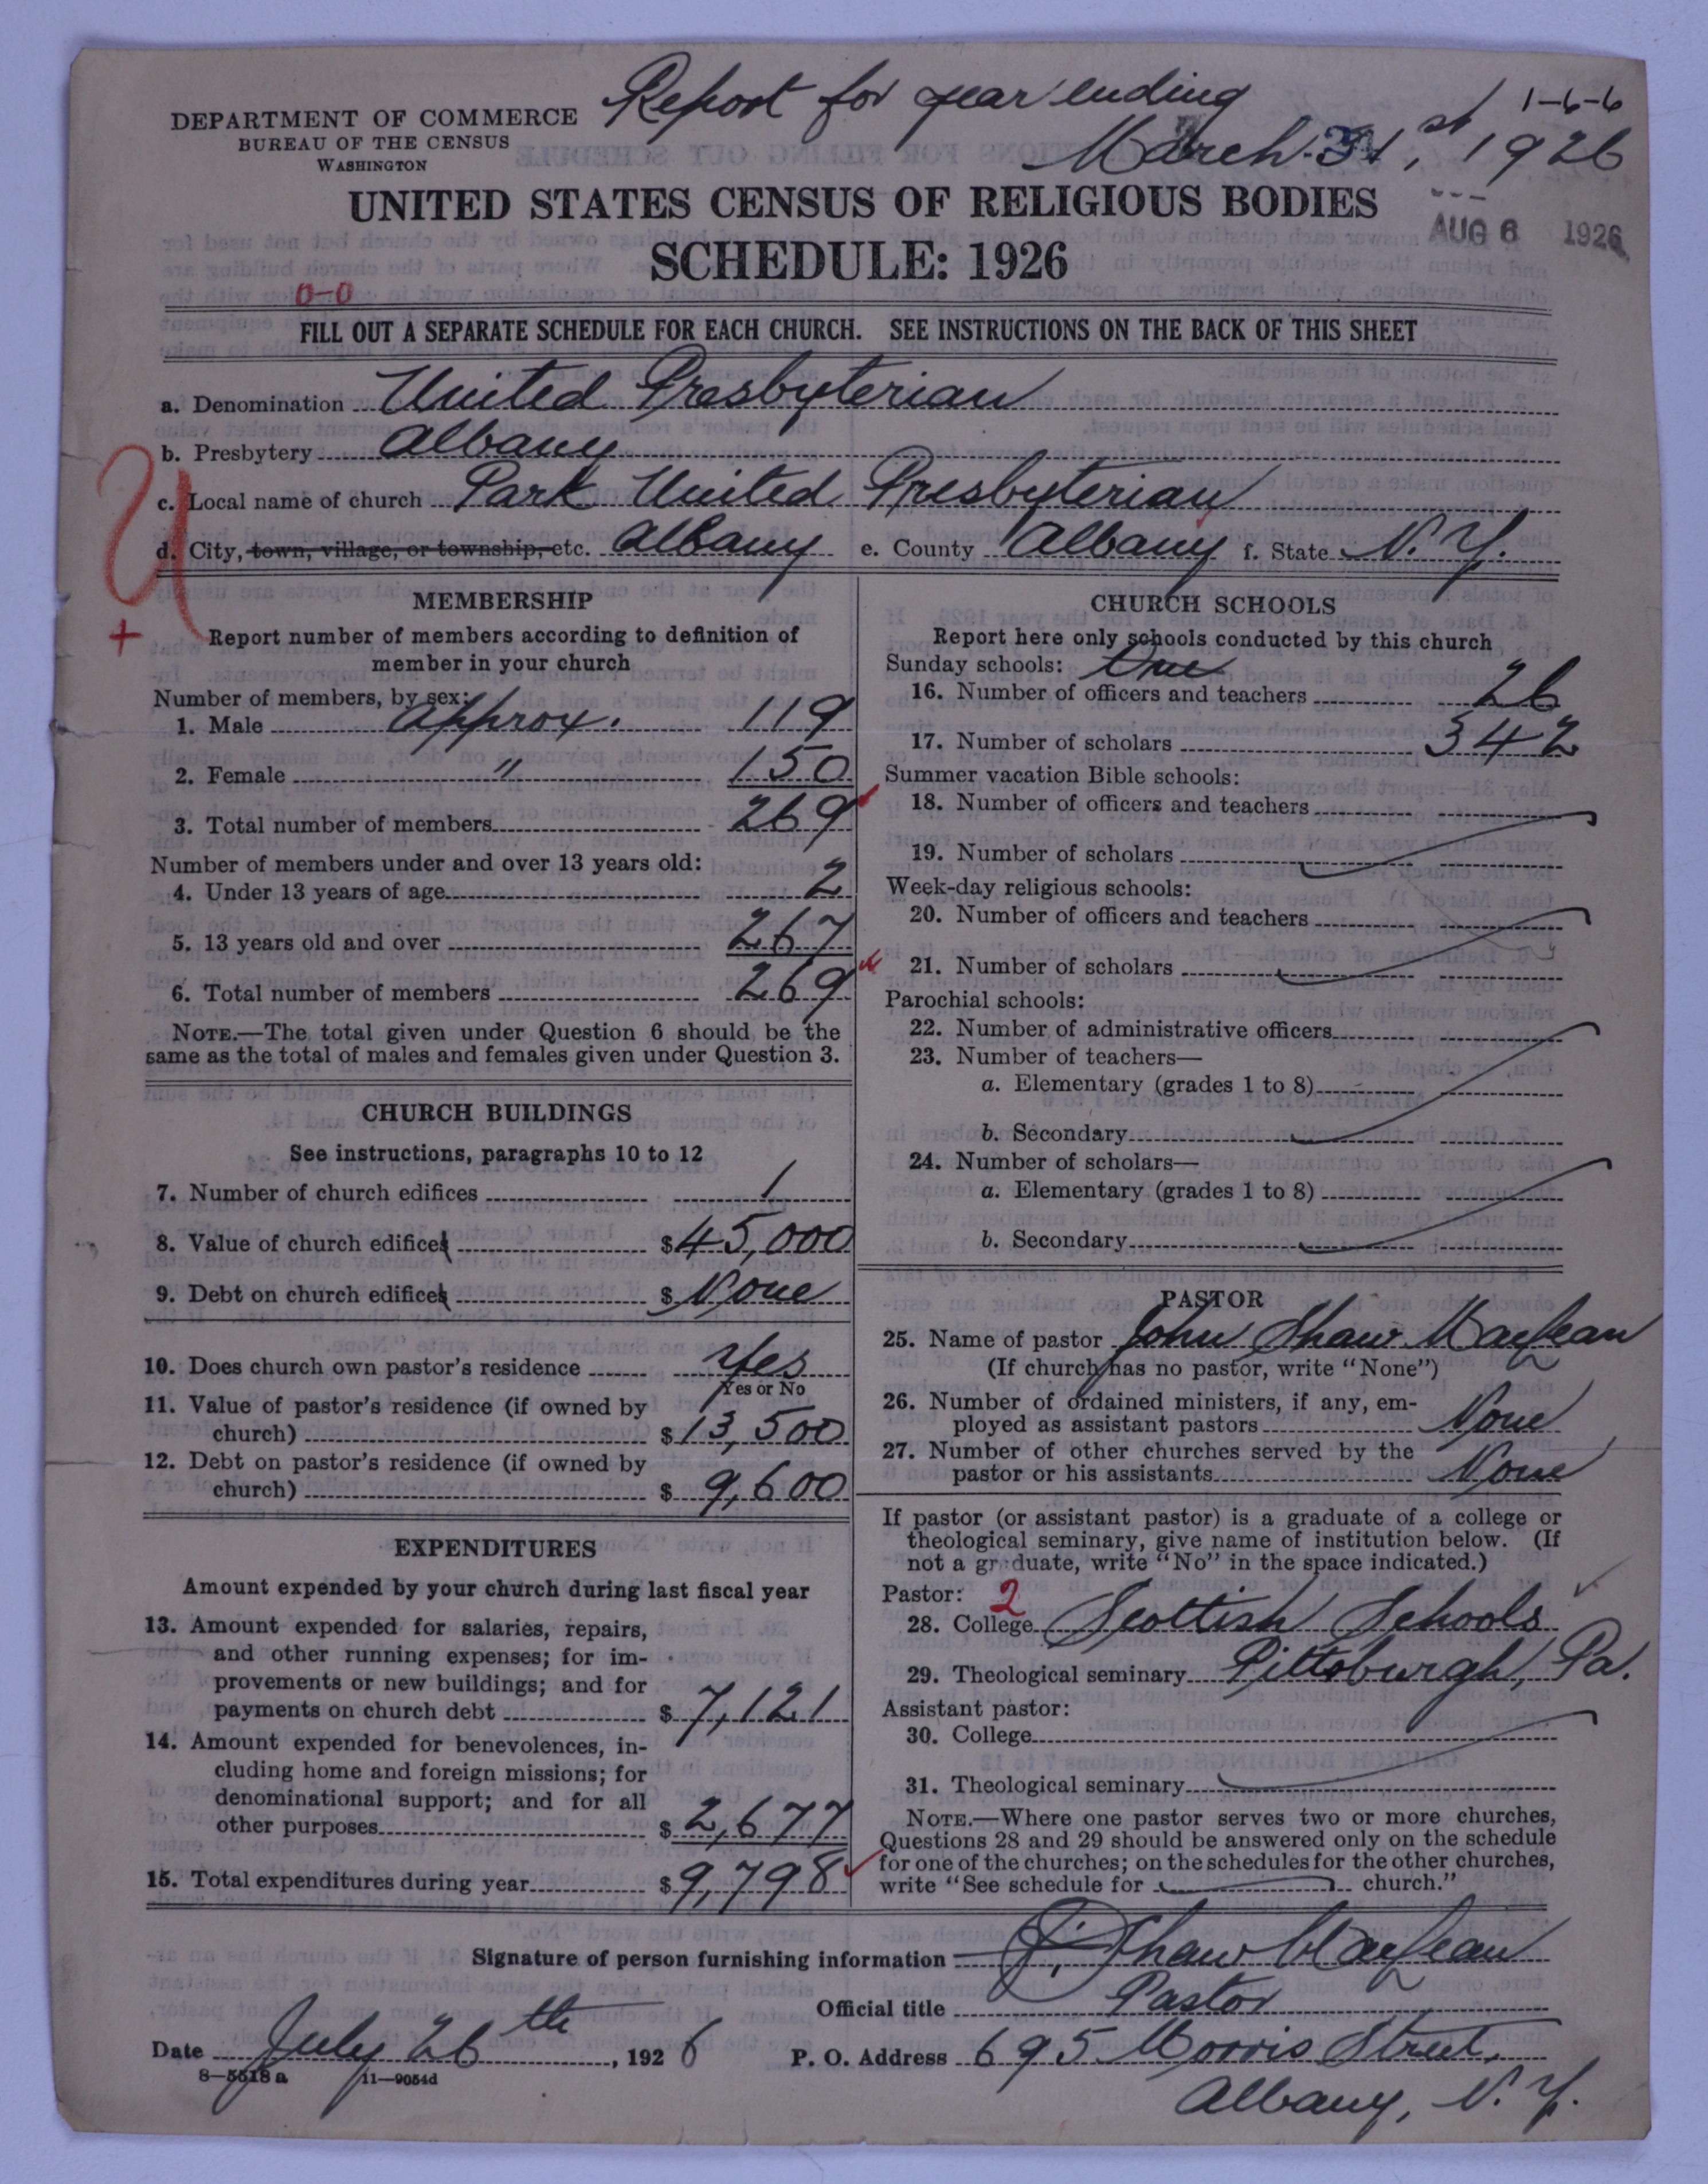 Report for year ending
1-6-6
March 31st, 1926
DEPARTMENT OF COMMERCE
BUREAU OF THE CENSUS
WASHINGTON
UNITED STATES CENSUS OF RELIGIOUS BODIES
SCHEDULE: 1926
AUG 6 1926
0-0
FILL OUT A SEPARATE SCHEDULE FOR EACH CHURCH. SEE INSTRUCTIONS ON THE BACK OF THIS SHEET
a. Denomination United Presbyterian
b. Presbytery Albany
c. Local name of church Park United Presbyterian
d. City, town, village, or township, etc. Albany e. County Albany f. State N. Y.
U
+
MEMBERSHIP
Report number of members according to definition of
member in your church
Number of members, by sex:
1. Male approx. 119
2. Female " 150
3. Total number of members 269
Number of members under and over 13 years old:
4. Under 13 years of age 2
5. 13 years old and over 267
6. Total number of members 269
NOTE.—The total given under Question 6 should be the
same as the total of males and females given under Question 3.
CHURCH BUILDINGS
See instructions, paragraphs 10 to 12
7. Number of church edifices 1
8. Value of church edifices $45,000
9. Debt on church edifices $ None
10. Does church own pastor's residence Yes
Yes or No
11. Value of pastor's residence (if owned by
church) $13,500
12. Debt on pastor's residence (if owned by
church) $ 9,600
EXPENDITURES
Amount expended by your church during last fiscal year
13. Amount expended for salaries, repairs,
and other running expenses; for im-
provements or new buildings; and for
payments on church debt $ 7,121
14. Amount expended for benevolences, in-
cluding home and foreign missions; for
denominational support; and for all
other purposes $ 2,677
15. Total expenditures during year $ 9,798
CHURCH SCHOOLS
Report here only schools conducted by this church
Sunday schools: One
16. Number of officers and teachers 26
17. Number of scholars 342
Summer vacation Bible schools:
18. Number of officers and teachers
19. Number of scholars
Week-day religious schools:
20. Number of officers and teachers
21. Number of scholars
Parochial schools:
22. Number of administrative officers
23. Number of teachers—
a. Elementary (grades 1 to 8)
b. Secondary
24. Number of scholars—
a. Elementary (grades 1 to 8)
b. Secondary
PASTOR
25. Name of pastor John Shaw
(If church has no pastor, write "None")
26. Number of ordained ministers, if any, em-
ployed as assistant pastors None
27. Number of other churches served by the
pastor or his assistants None
If pastor (or assistant pastor) is a graduate of a college or
theological seminary, give name of institution below. (If
not a graduate, write "No" in the space indicated.)
Pastor: 2
28. College Scottish Schools
29. Theological seminary Pittsburgh, Pa.
Assistant pastor:
30. College
31. Theological seminary
NOTE.—Where one pastor serves two or more churches,
Questions 28 and 29 should be answered only on the schedule
for one of the churches; on the schedules for the other churches,
write "See schedule for church."
Signature of person furnishing information J. Shaw
Official title Pastor
Date July 26th, 1926 P. O. Address 695 Morris Street,
Albany, N. Y.
8—5518 a 11—9054d